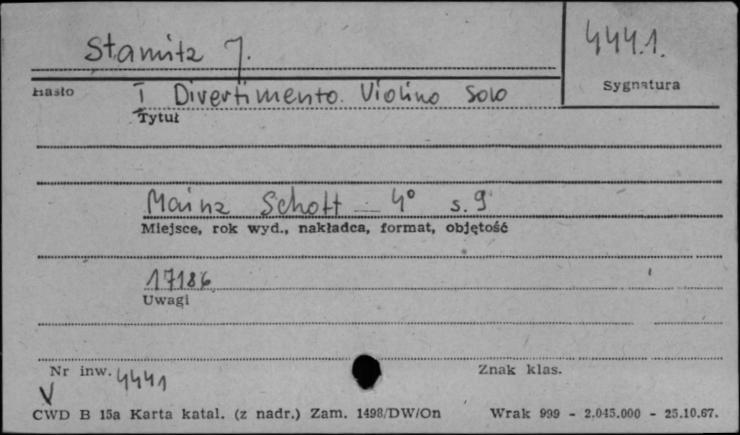 Stamitz J.
444.1.
Hasło
Sygnatura
I Divertimento. Violino Solo
Tytuł
Mainz Schott — 4° s. 9
Miejsce, rok wyd., nakładca, format, objętość
17186
Uwagi
Nr inw. 4441
Znak klas.
V
CWD B 15a Karta katal. (z nadr.) Zam. 1498/DW/On Wrak 999 - 2.045.000 - 25.10.67.